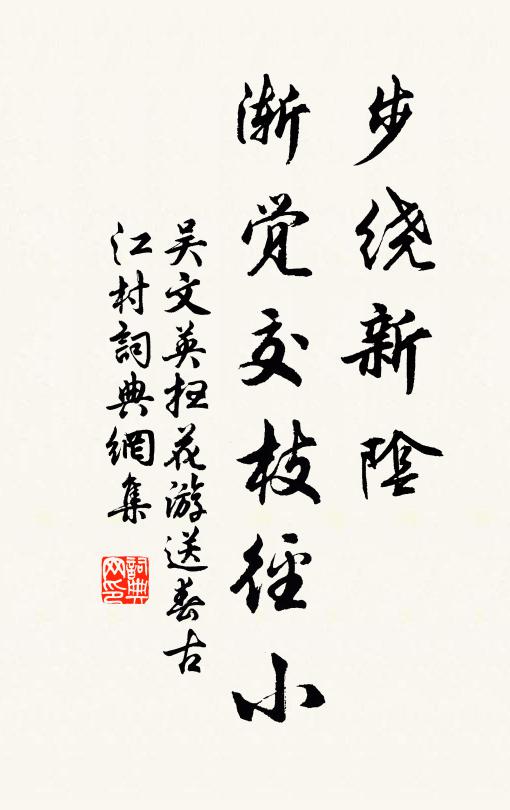 步绕新陰
渐觉交枝径小
吴文英扫花游送春古
江村詞典網集
詞典网印